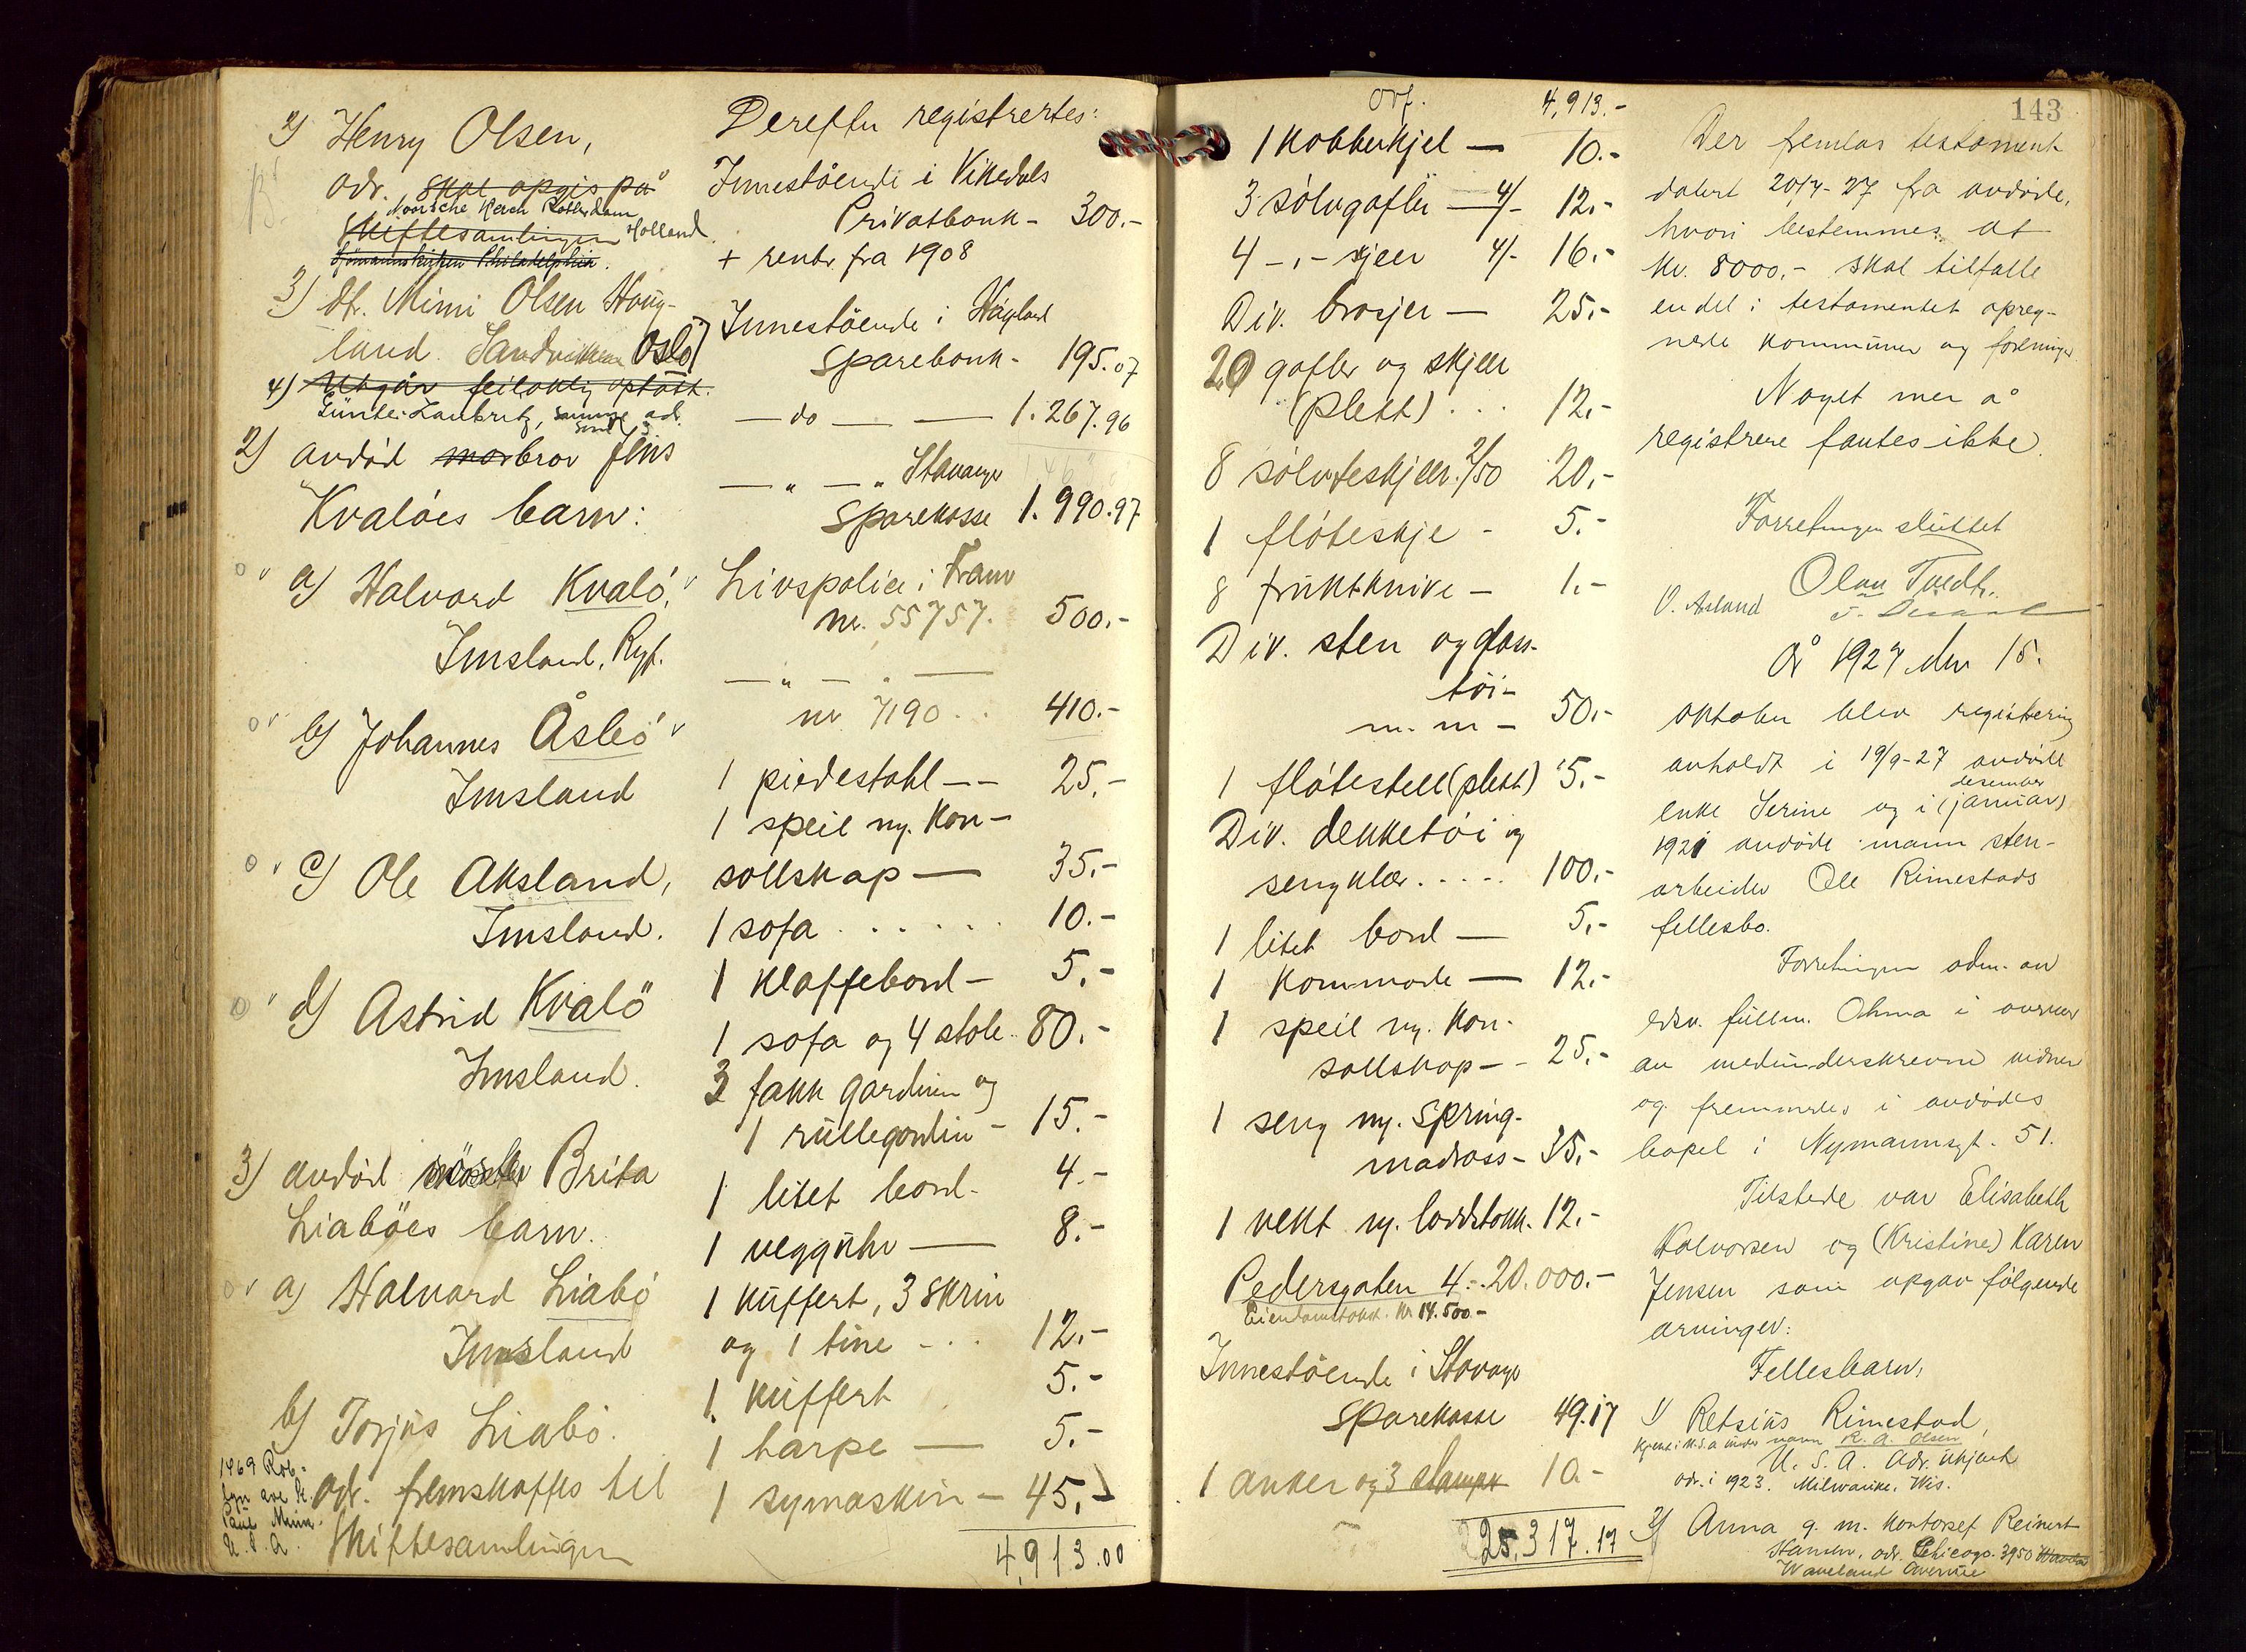 2) Henry Olsen,
adr. skal opgis på
Norsche Kerch Rotterdam
Skiftesamlingen Holland
Sjømannskirken Philadelphia.
3) fr. Mimi Olsen Haug-
land. Sandvikken Oslo
4) Utgår feilaktig optatt.
Günter Lankritz, samme adr.
2) avdød morbror Jens
Kvaløes barn:
a) Halvard Kvalø,
Imsland, Ryf.
b) Johannes Åsbø
Imsland
c) Ole Aksland,
Imsland.
d) Astrid Kvalö
Imsland.
3) avdød Brita
Liabøes barn.
a) Halvard Liabø
Imsland
b) Torjus Liabø.
adr. fremskaffes til
Skiftesamlingen
1469 Rob-
lyn ave St.
Paul Minn.
U.S.A.
Derefter registrertes:
Innestående i Vikedals
Privatbank - 300.-
+ renter fra 1908
Innestående i Høyland
sparebank - 195.07
— do — — 1.267.96
— " — " Stavanger
sparekasse 1.990.97
Livspolice i Fram
nr. 55757. 500.-
— " — " —
nr 7190 .. 410.-
1 piedestahl -- 25.-
1 speil m. kon-
sollskap — 35.-
1 sofa . . . . . . 10.-
1 klaffebord - 5.-
1 sofa og 4 stole .. 80.-
3 fakk gardiner og
1 rullegardin - 15.-
1 litet bord - 4.-
1 veggúhr — 8.-
1 kuffert, 3 skrin
og 1 tine - .. 12.-
1 kuffert 5.-
1 harpe — 5.-
1 symaskin - 45.-
4,913.00
143
ovf. 4,913.-
1 kobberkjel — 10.-
3 sølvgafler — 4/- 12.-
4 -,- skjeer 4/- 16.-
Div. brosjer — 25.-
20 gafler og skjeer
(plett) . . . 12.-
8 sølvteskjeer 2/50 20.-
1 fløteskje - 5.-
8 fruktknive - 1.-
Div. sten og glass-
tøi-
m. m - 50.-
1 fløtestell (plett) 5.-
Div. dekketøi og
sengklær . . . . . 100.-
1 litet bord — 5.-
1 kommode — 12.-
1 speil m. kon-
sollskap - - 25.-
1 seng m. spring-
madrass - 35.-
1 vekt m. loddstokk. 12.-
Pedersgaten 4 .- 20.000.-
Eiendomstakst. kr 14.500.-
Innestående i Stavanger
sparekasse 49.17
1 anker og 3 stamper 10.-
25,317.17
Der fremlas testament
datert 20/4-27 fra avdøde,
hvori bestemmes at
kr. 8000.- skal tilfalle
en del i testamentet opreg-
nede kommuner og foreninger.
Noget mer å
registrere fantes ikke.
Forretningen sluttet
Olav Tvedt.
O. Asland
År 1927 den 15.
oktober blev registrering
avholdt i 19/9-27 avdøde
desember
enke Serine og i (januar)
1921 avdøde mann sten-
arbeider Ole Rimestads
fellesbo.
Forretningen adm. av
edsv. fullm. Ohma i overvær
av medunderskrevne vidner
og fremmedes i avdødes
bopel i Nymannsgt. 51.
Tilstede var Elisabeth
Halvorsen og (Kristine) Karen
Jensen som opgav følgende
arvinger:
Fellesbarn,
1) Retsius Rimestad,
kjent i U.S.A under navn R. A. Olsen
U. S. A. Adr. ukjent
adr. i 1923. Milwaukee, Wis.
2) Anna g. m. kontorsef Reinert
Hansen, adr. Chicago. 3950
Waveland Avenue